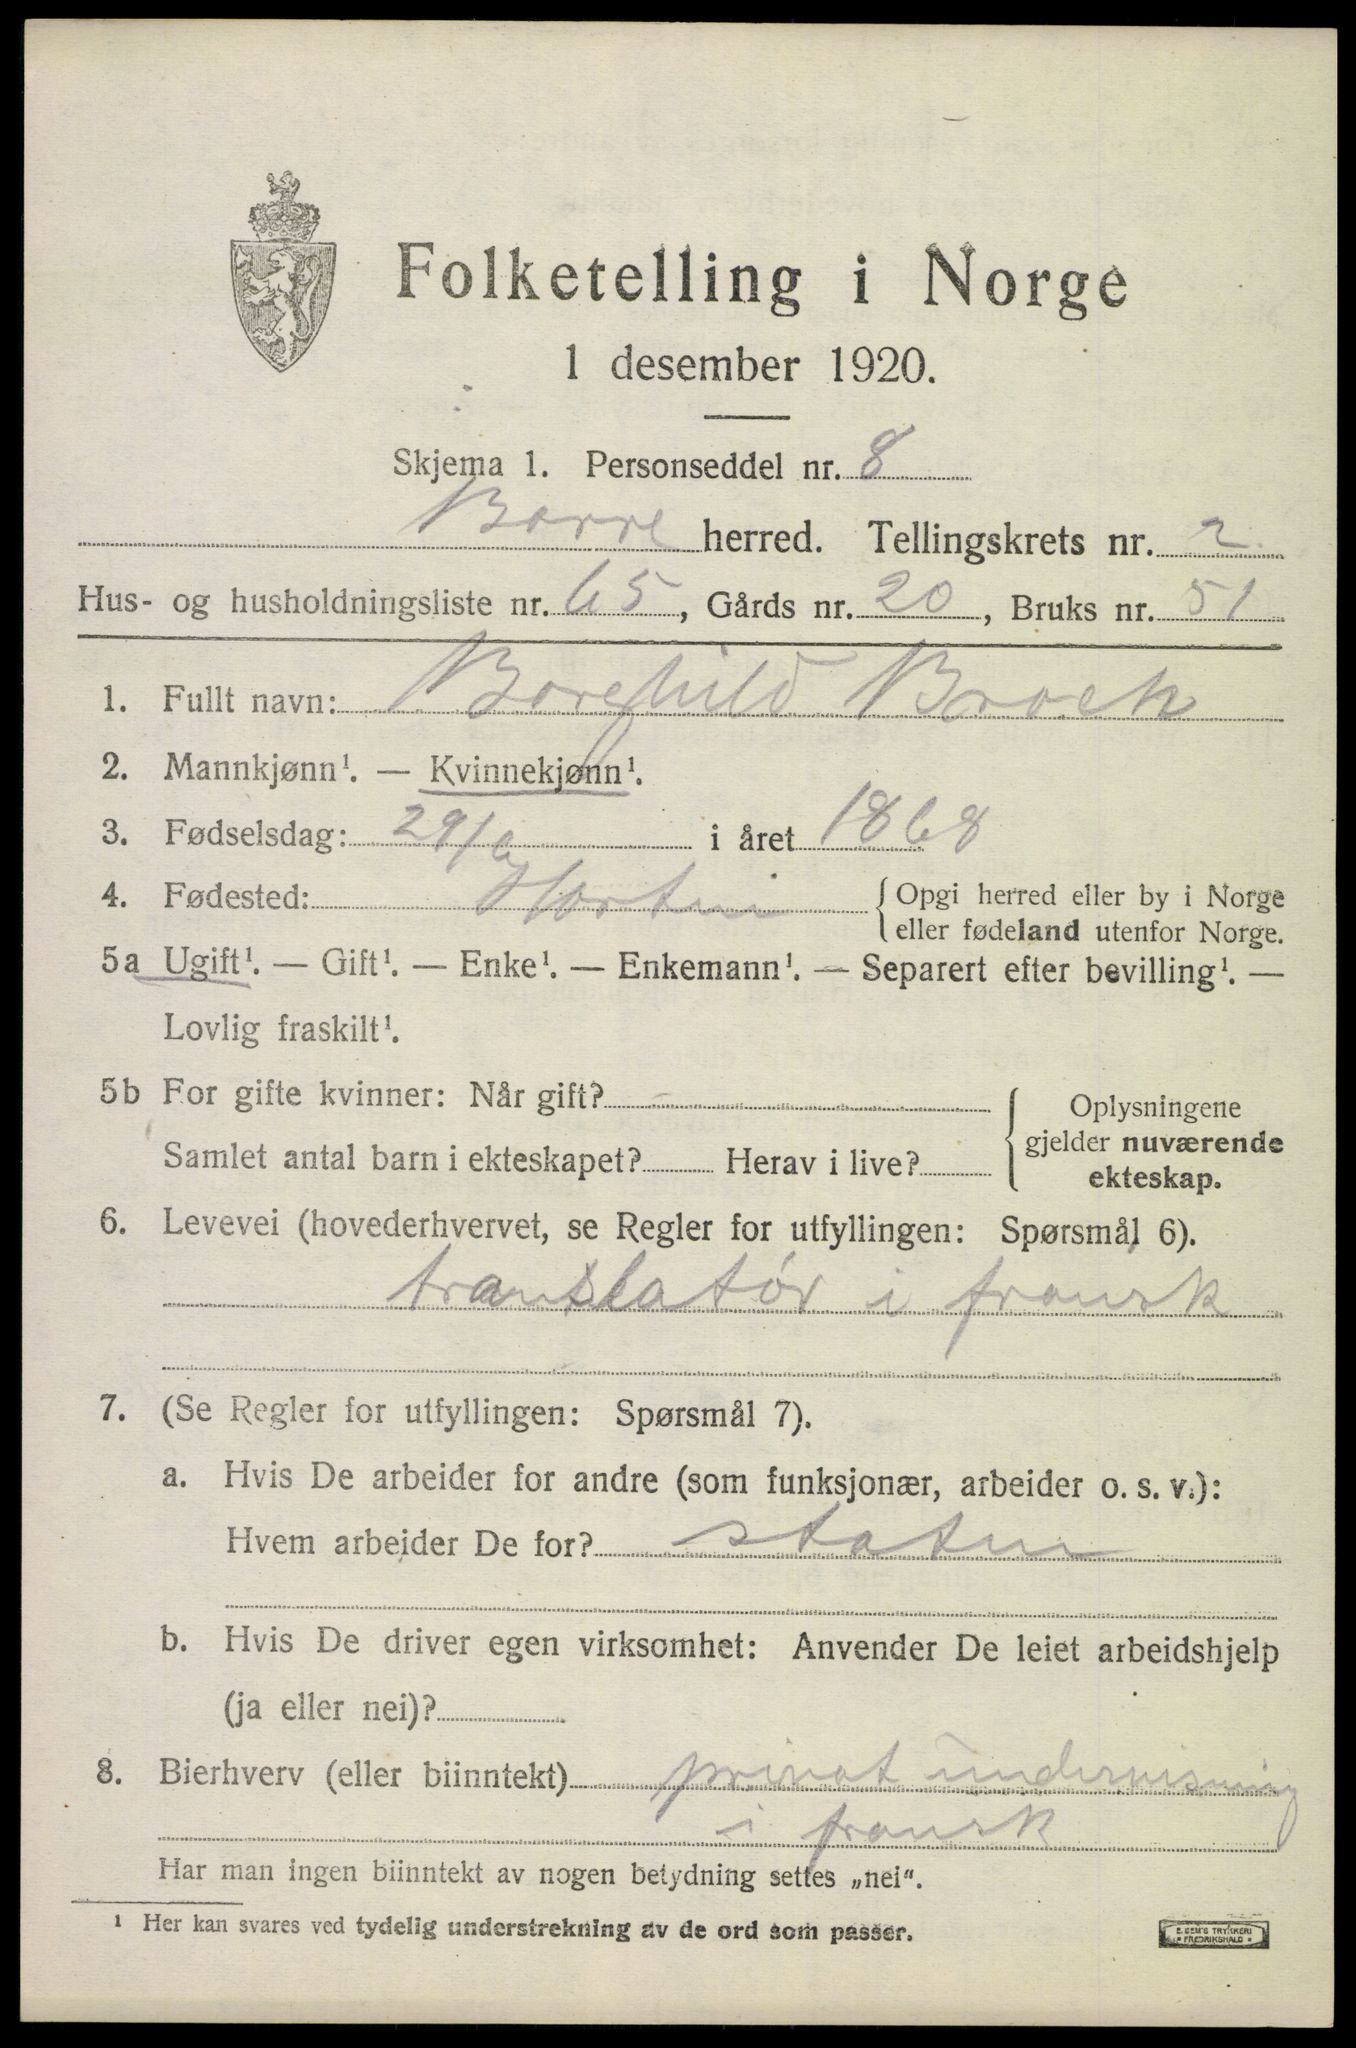 Folketelling i Norge
1 desember 1920.
Skjema 1. Personseddel nr. 8
Borre herred. Tellingskrets nr. 2
Hus- og husholdningsliste nr. 65, Gårds nr. 20, Bruks nr. 51
1. Fullt navn: Borghild Broch
2. Mannkjønn¹. — Kvinnekjønn¹.
3. Fødselsdag: 29/6 i året 1868
4. Fødested: Horten { Opgi herred eller by i Norge
eller fødeland utenfor Norge.
5a Ugift¹. — Gift¹. — Enke¹. — Enkemann¹. — Separert efter bevilling¹. —
Lovlig fraskilt¹.
5b For gifte kvinner: Når gift? { Oplysningene
gjelder nuværende
Samlet antal barn i ekteskapet? Herav i live?
ekteskap.
6. Levevei (hovederhvervet, se Regler for utfyllingen: Spørsmål 6).
translatør i fransk
7. (Se Regler for utfyllingen: Spørsmål 7).
a. Hvis De arbeider for andre (som funksjonær, arbeider o. s. v.):
Hvem arbeider De for? staten
b. Hvis De driver egen virksomhet: Anvender De leiet arbeidshjelp
(ja eller nei)?
8. Bierhverv (eller biinntekt) privat undervisning
i fransk
Har man ingen biinntekt av nogen betydning settes „nei“.
¹ Her kan svares ved tydelig understrekning av de ord som passer.
E. SEM'S TRYKKERI
• FREDRIKSHALD •